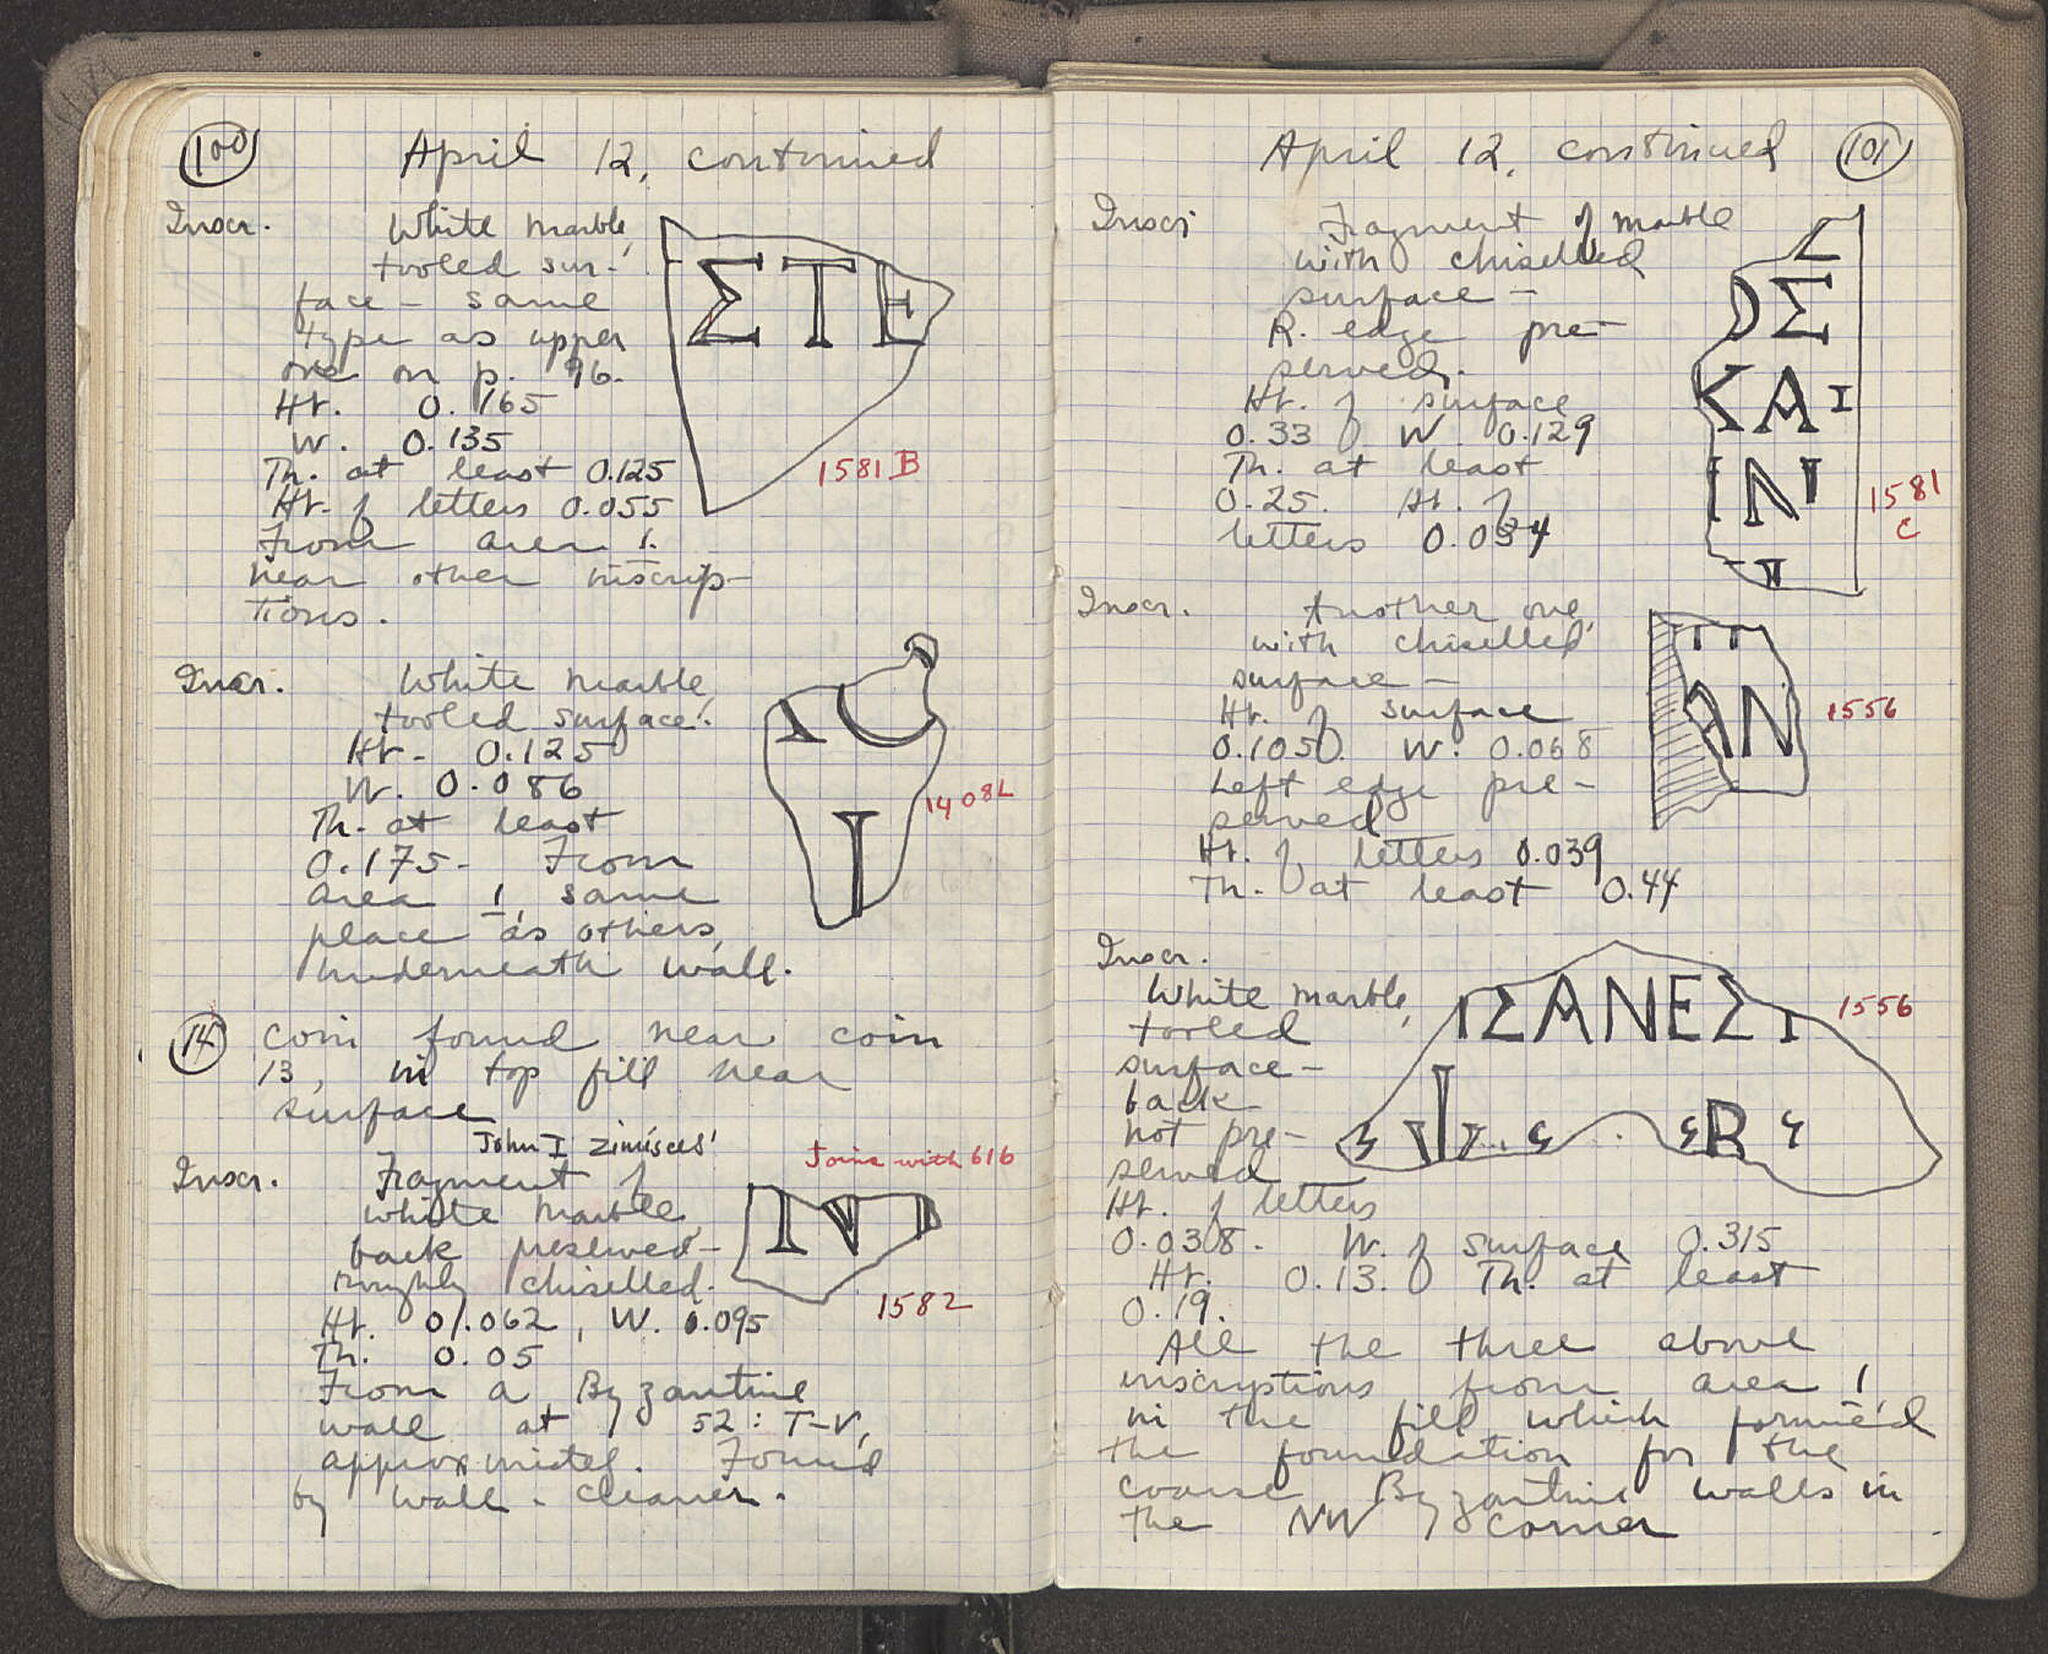 100
April 12, continued
Inscr. White marble,
tooled sur-
face - same
type as upper
one on p. 96.
Ht. 0.165
W. 0.135
Th. at least 0.125
Ht. of letters 0.055
From area 1.
near other inscrip-
tions.
ΣΤΕ
1581 B
Inscr. White marble,
tooled surface.
Ht. 0.125
W. 0.086
Th. at least
0.175. From
area 1, same
place as others,
underneath wall.
Ι
1408 L
14 Coin found near coin
13, in top fill near
surface
John I Zimisces'
Inscr. Fragment of
white marble,
back preserved -
roughly chiselled.
Ht. 0.062, W. 0.095
Th. 0.05
From a Byzantine
wall at 52: T-V,
approximately. Found
by wall-cleaner.
Joins with 616
1582
April 12, continued 101
Inscr. Fragment of marble
with chiselled
surface -
R. edge pre-
served.
Ht. of surface
0.33 W. 0.129
Th. at least
0.25. Ht. of
letters 0.034
ΟΣ
ΚΑΙ
ΙΝΙ
1581
C
Inscr. Another one,
with chiselled
surface -
Ht. of surface
0.105 W. 0.068
Left edge pre-
served
Ht. of letters 0.039
Th. at least 0.44
ΑΝ
1556
Inscr.
White marble,
tooled
surface -
back
not pre-
served
Ht. of letters
0.038. W. of surface 0.315
Ht. 0.13. Th. at least
0.19.
ΙΣΑΝΕΣΙ
1556
All the three above
inscriptions from area 1,
in the fill which formed
the foundation for the
coarse Byzantine walls in
the NW corner